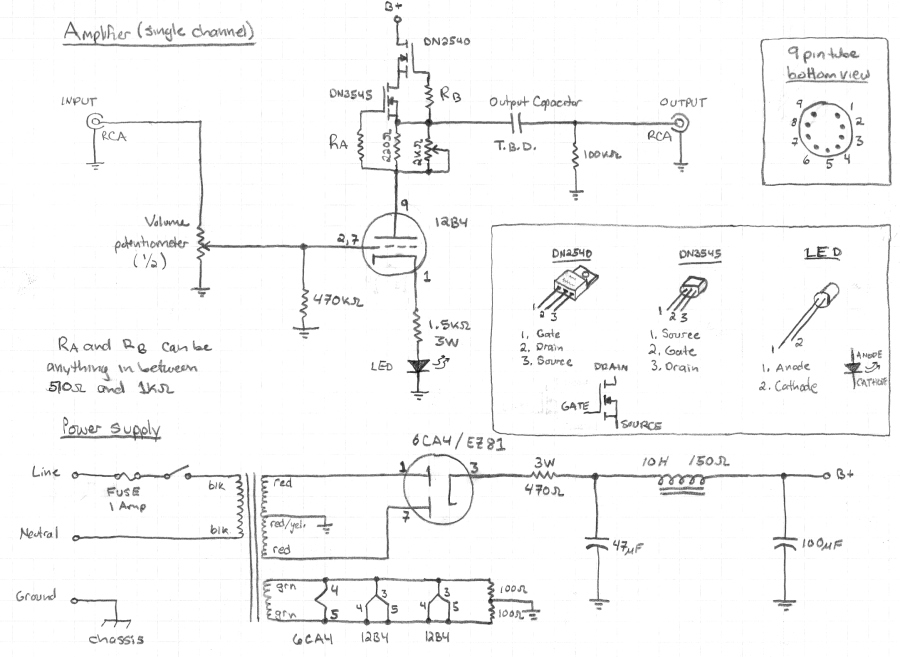 B+
Amplifier (single channel)
DN2540
9 pin tube
bottom view
DN3545
RB
INPUT
Output Capacitor
OUTPUT
RCA
T.B.D.
RCA
RA
220Ω
2KΩ
100KΩ
9
8
7
6
5
4
3
2
1
9
12B4
Volume
potentiometer
(1/2)
2,7
1
470KΩ
1.5KΩ
3W
LED
RA and RB can be
anything in between
510Ω and 1KΩ
DN2540
DN3545
LED
1 2 3
1 2 3
1 2
1. Gate
2. Drain
3. Source
1. Source
2. Gate
3. Drain
1. Anode
2. Cathode
DRAIN
GATE
SOURCE
ANODE
CATHODE
Power supply
6CA4/EZ81
Line
FUSE
1 Amp
blk
red
1
3
3W
470Ω
10H 150Ω
B+
red/yelr
7
Neutral
blk
red
47μF
100μF
Ground
chassis
grn
grn
4
5
3
4
5
3
4
5
100Ω
100Ω
6CA4
12B4
12B4